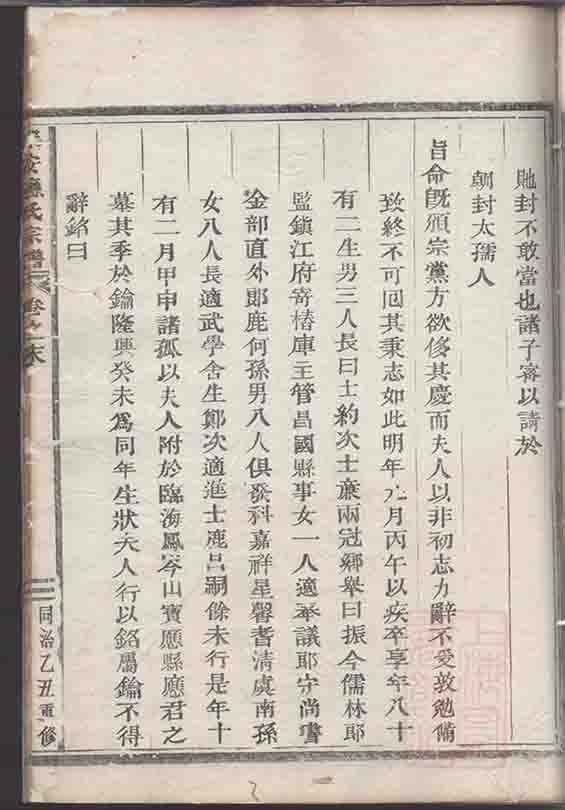 貤封不敢當也諸子密以請於
朝封太孺人
旨命旣頒宗黨方欲侈其慶而夫人以非初志力辭不受敦勉備
致終不可囘其秉志如此明年九月丙午以疾卒享年八十
有二生男三人長曰士約次士亷兩冠鄉舉曰振今儒林郎
監鎮江府寄樁庫主管昌國縣事女一人適奉議郎守尚書
金部直外郞鹿何孫男八人俱發科嘉祥星馨耆清虞南孫
女八人長適武學舍生鄭次適進士鹿呂嗣餘未行是年十
有二月甲申諸孤以夫人附於臨海鳳岑山寶應縣應君之
墓其季於鑰隆興癸未爲同年生狀夫人行以銘屬鑰不得
辭銘曰
安應氏宗譜 卷之 末
同治乙丑重修